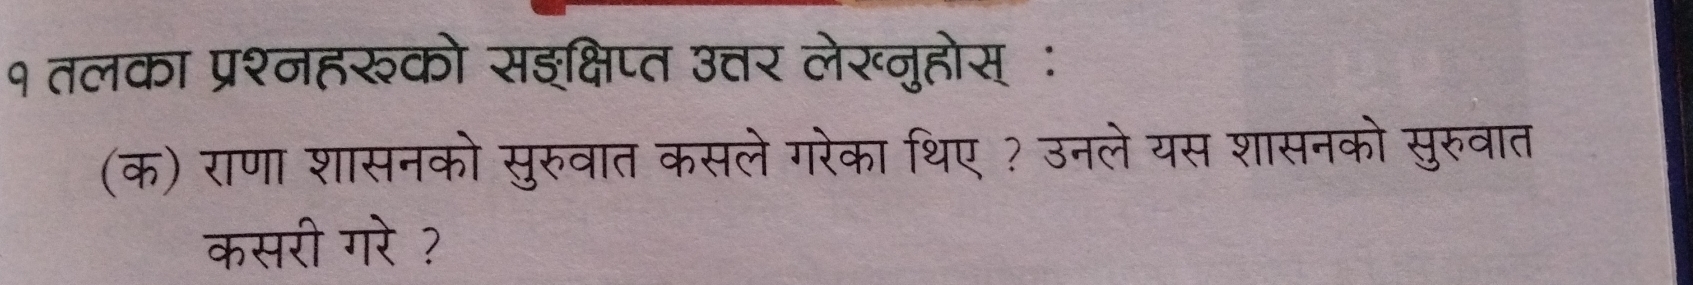 १ तलका प्रश्नहरुको सङ्क्षिप्त उत्तर लेख्नुहोस् :
(क) राणा शासनको सुरुवात कसले गरेका थिए ? उनले यस शासनको सुरुवात
कसरी गरे ?